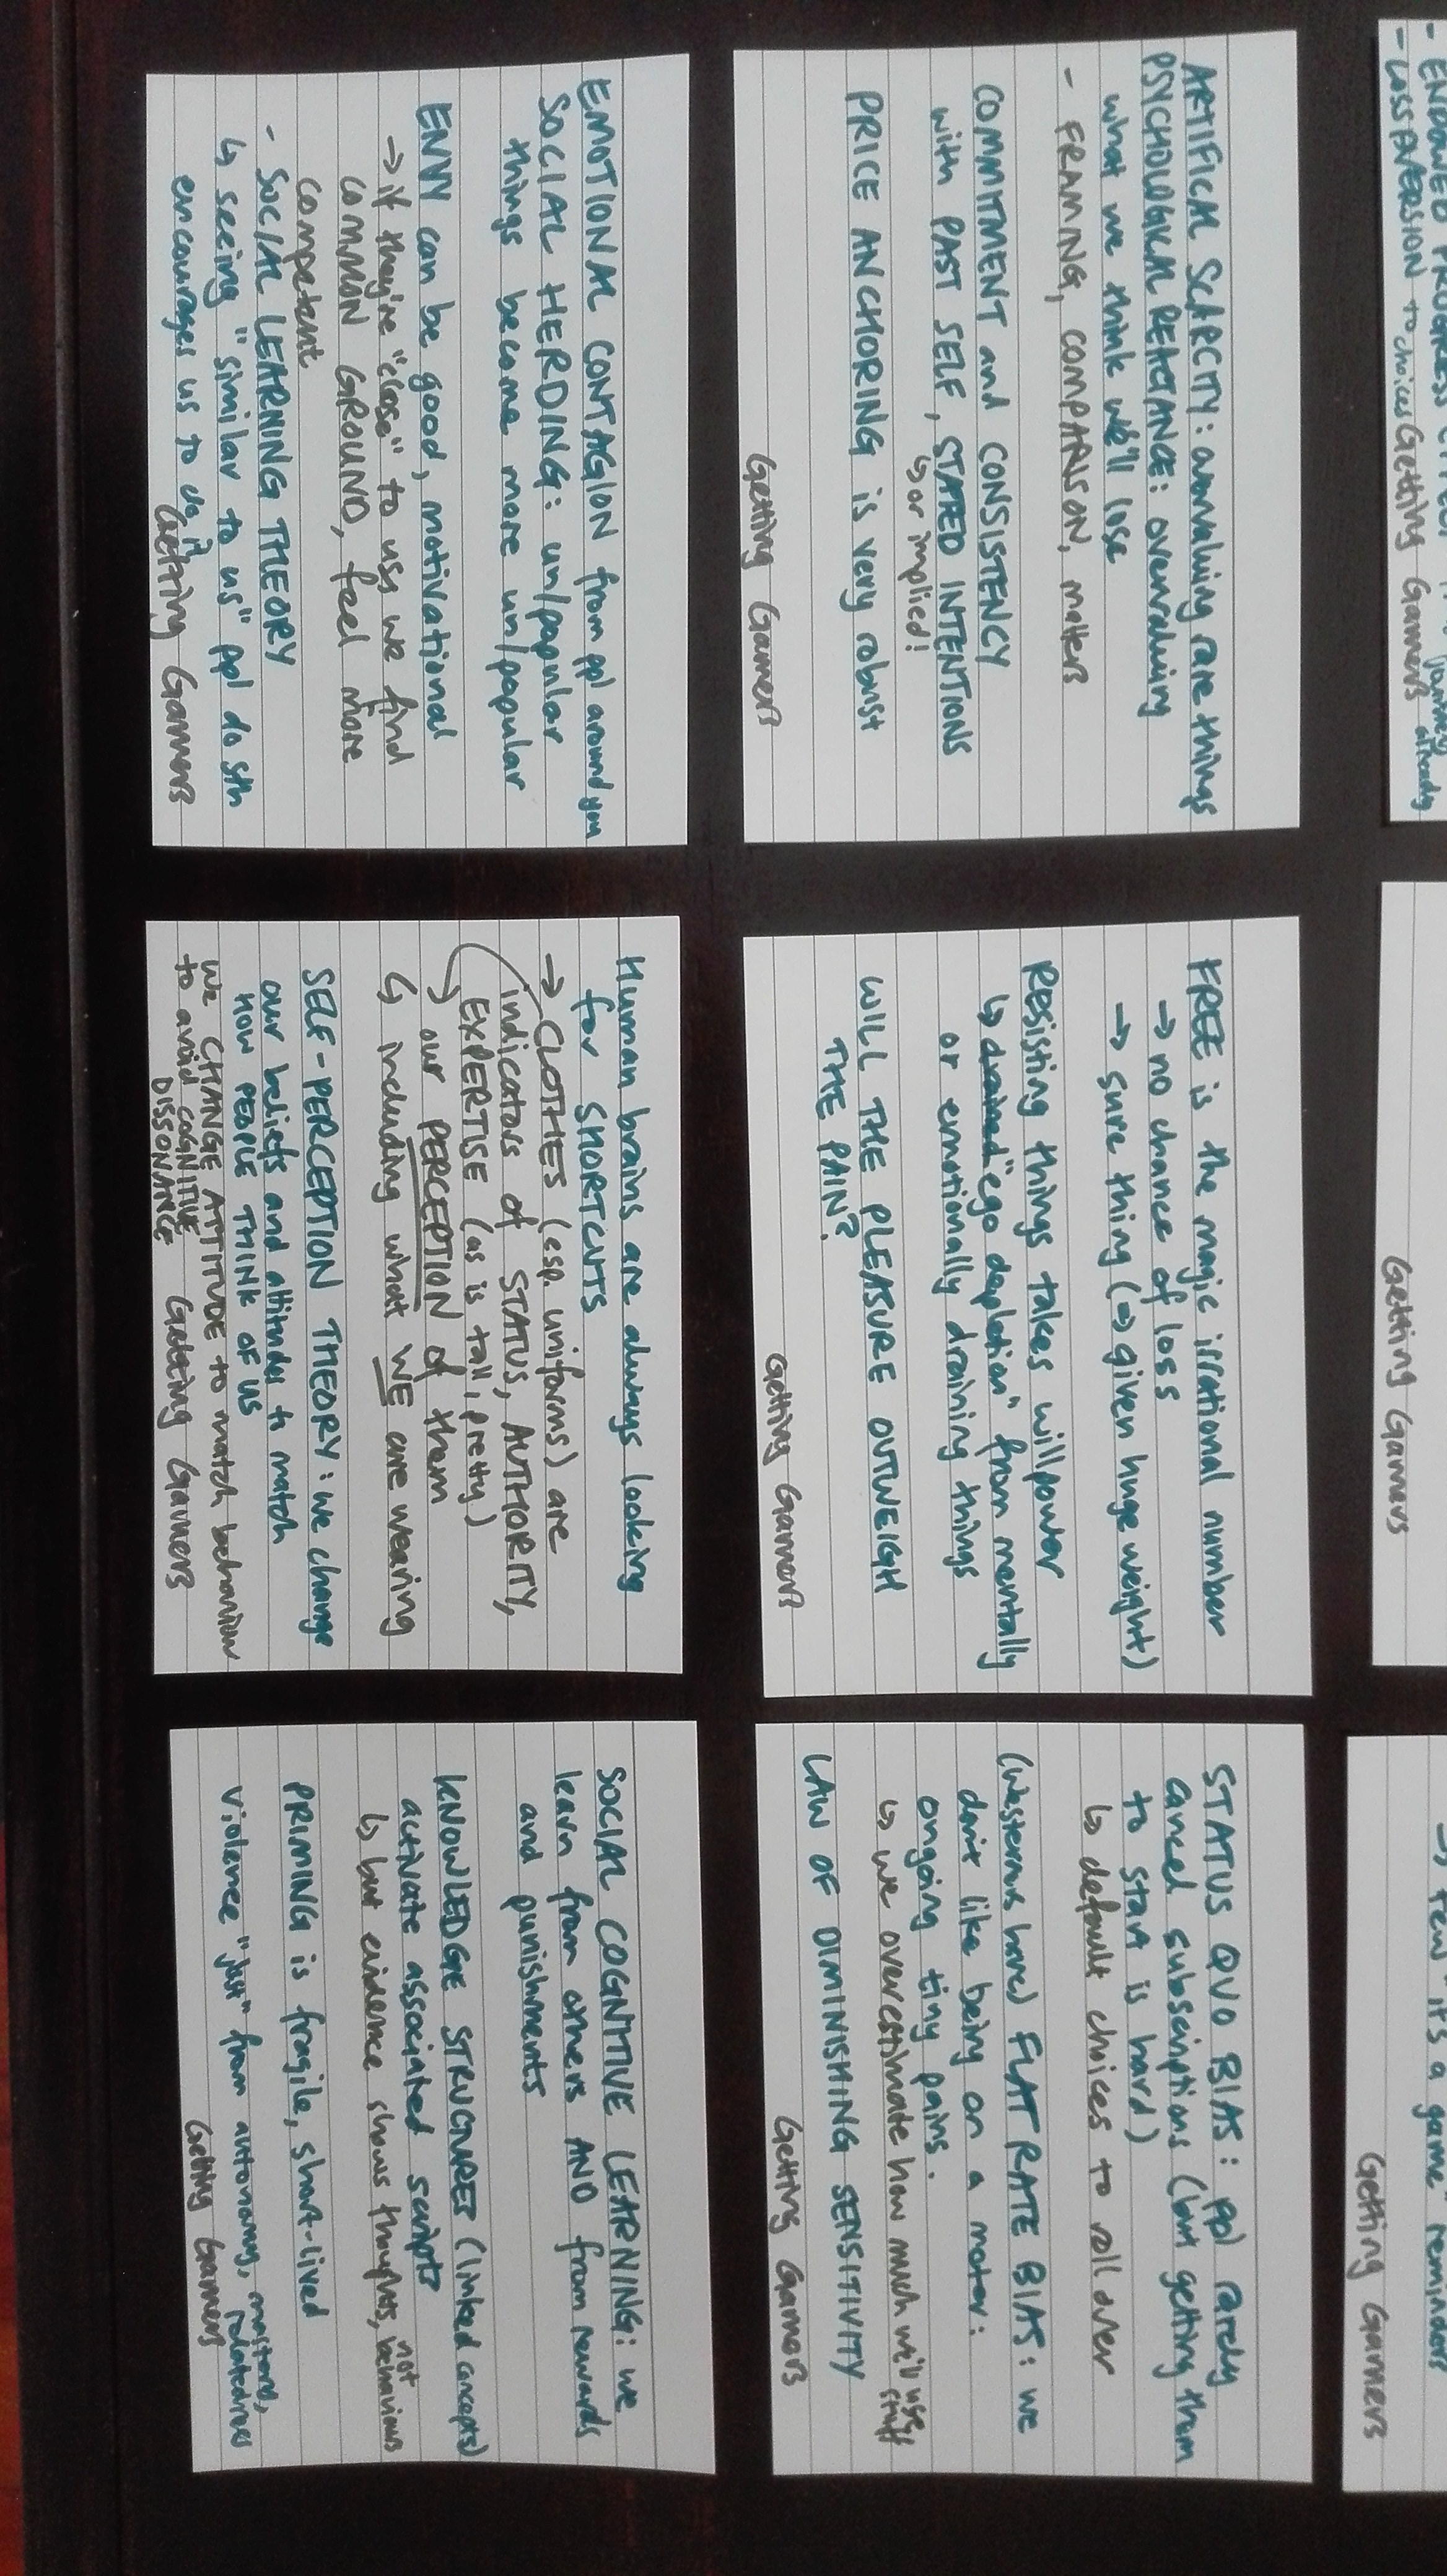 - ENDOWED PROGRESS
already
- LOSS AVERSION to choices
Getting Gamers
Getting Gamers
→ few "it's a game" reminders
Getting Gamers
ARTIFICAL SCARCITY: overvaluing rare things
PSYCHOLOGICAL REACTANCE: overvaluing
what we think we'll lose
- FRAMING, COMPARISON, matters
COMMITMENT and CONSISTENCY
with PAST SELF, STATED INTENTIONS
↳ or implied!
PRICE ANCHORING is very robust
Getting Gamers
FREE is the magic irrational number
→ no chance of loss
→ sure thing (⇒ given huge weight)
Resisting things takes willpower
↳ drained "ego depletion" from mentally
or emotionally draining things
WILL THE PLEASURE OUTWEIGH
THE PAIN?
Getting Gamers
STATUS QUO BIAS: ppl rarely
cancel subscriptions (but getting them
to start is hard)
↳ default choices to roll over
(Westerners have) FLAT RATE BIAS: we
don't like being on a meter:
ongoing tiny pains.
↳ we overestimate how much we'll use stuff
LAW OF DIMINISHING SENSITIVITY
Getting Gamers
EMOTIONAL CONTAGION from ppl around you
SOCIAL HERDING: un/popular
things become more un/popular
ENVY can be good, motivational
→ if they're "close" to us, we find
COMMON GROUND, feel more
competent
- SOCIAL LEARNING THEORY
↳ seeing "similar to us" ppl do sth
encourages us to do it
Getting Gamers
Human brains are always looking
for SHORTCUTS
→ CLOTHES (esp. uniforms) are
indicators of STATUS, AUTHORITY,
EXPERTISE (as is tall, pretty)
↳ our PERCEPTION of them
↳ including what WE are wearing
SELF-PERCEPTION THEORY: we change
our beliefs and attitudes to match
HOW PEOPLE THINK OF US
We CHANGE ATTITUDE to match behaviour
to avoid COGNITIVE
DISSONANCE
Getting Gamers
SOCIAL COGNITIVE LEARNING: we
learn from others AND from rewards
and punishments
KNOWLEDGE STRUCTURES (linked concepts)
activate associated scripts
↳ but evidence shows thoughts, not behaviours
PRIMING is fragile, short-lived
Violence "just" from autonomy, mastery,
relatedness
Getting Gamers